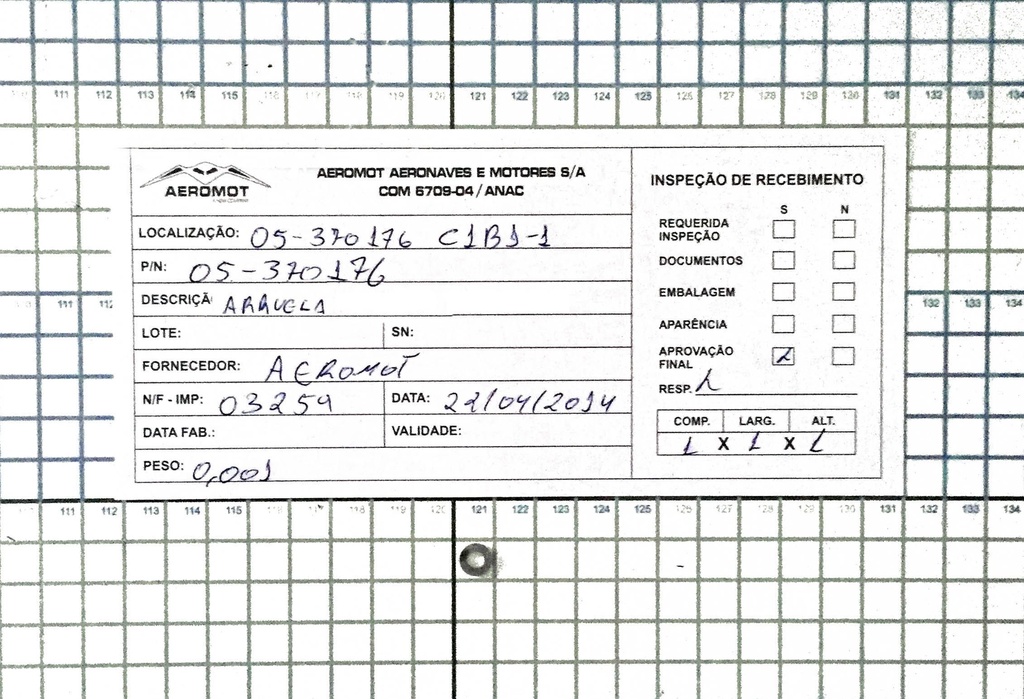 111 112 113 114 115 116 117 118 119 120 121 122 123 124 125 126 127 128 129 130 131 132 133 134
AEROMOT
AEROMOT AERONAVES E MOTORES S/A
COM 6709-04 / ANAC
LOCALIZAÇÃO: 05-370176 C1B1-1
P/N: 05-370176
DESCRIÇÃ ARRUELA
LOTE: SN:
FORNECEDOR: AEROMOT
N/F - IMP: 03259 DATA: 22/04/2014
DATA FAB.: VALIDADE:
PESO: 0,001
INSPEÇÃO DE RECEBIMENTO
S N
REQUERIDA
INSPEÇÃO
DOCUMENTOS
EMBALAGEM
APARÊNCIA
APROVAÇÃO
FINAL
RESP.
COMP. LARG. ALT.
1 X 1 X 1
111 11 132 133 134
111 112 113 114 115 116 117 118 119 120 121 122 123 124 125 126 127 128 129 130 131 132 133 134